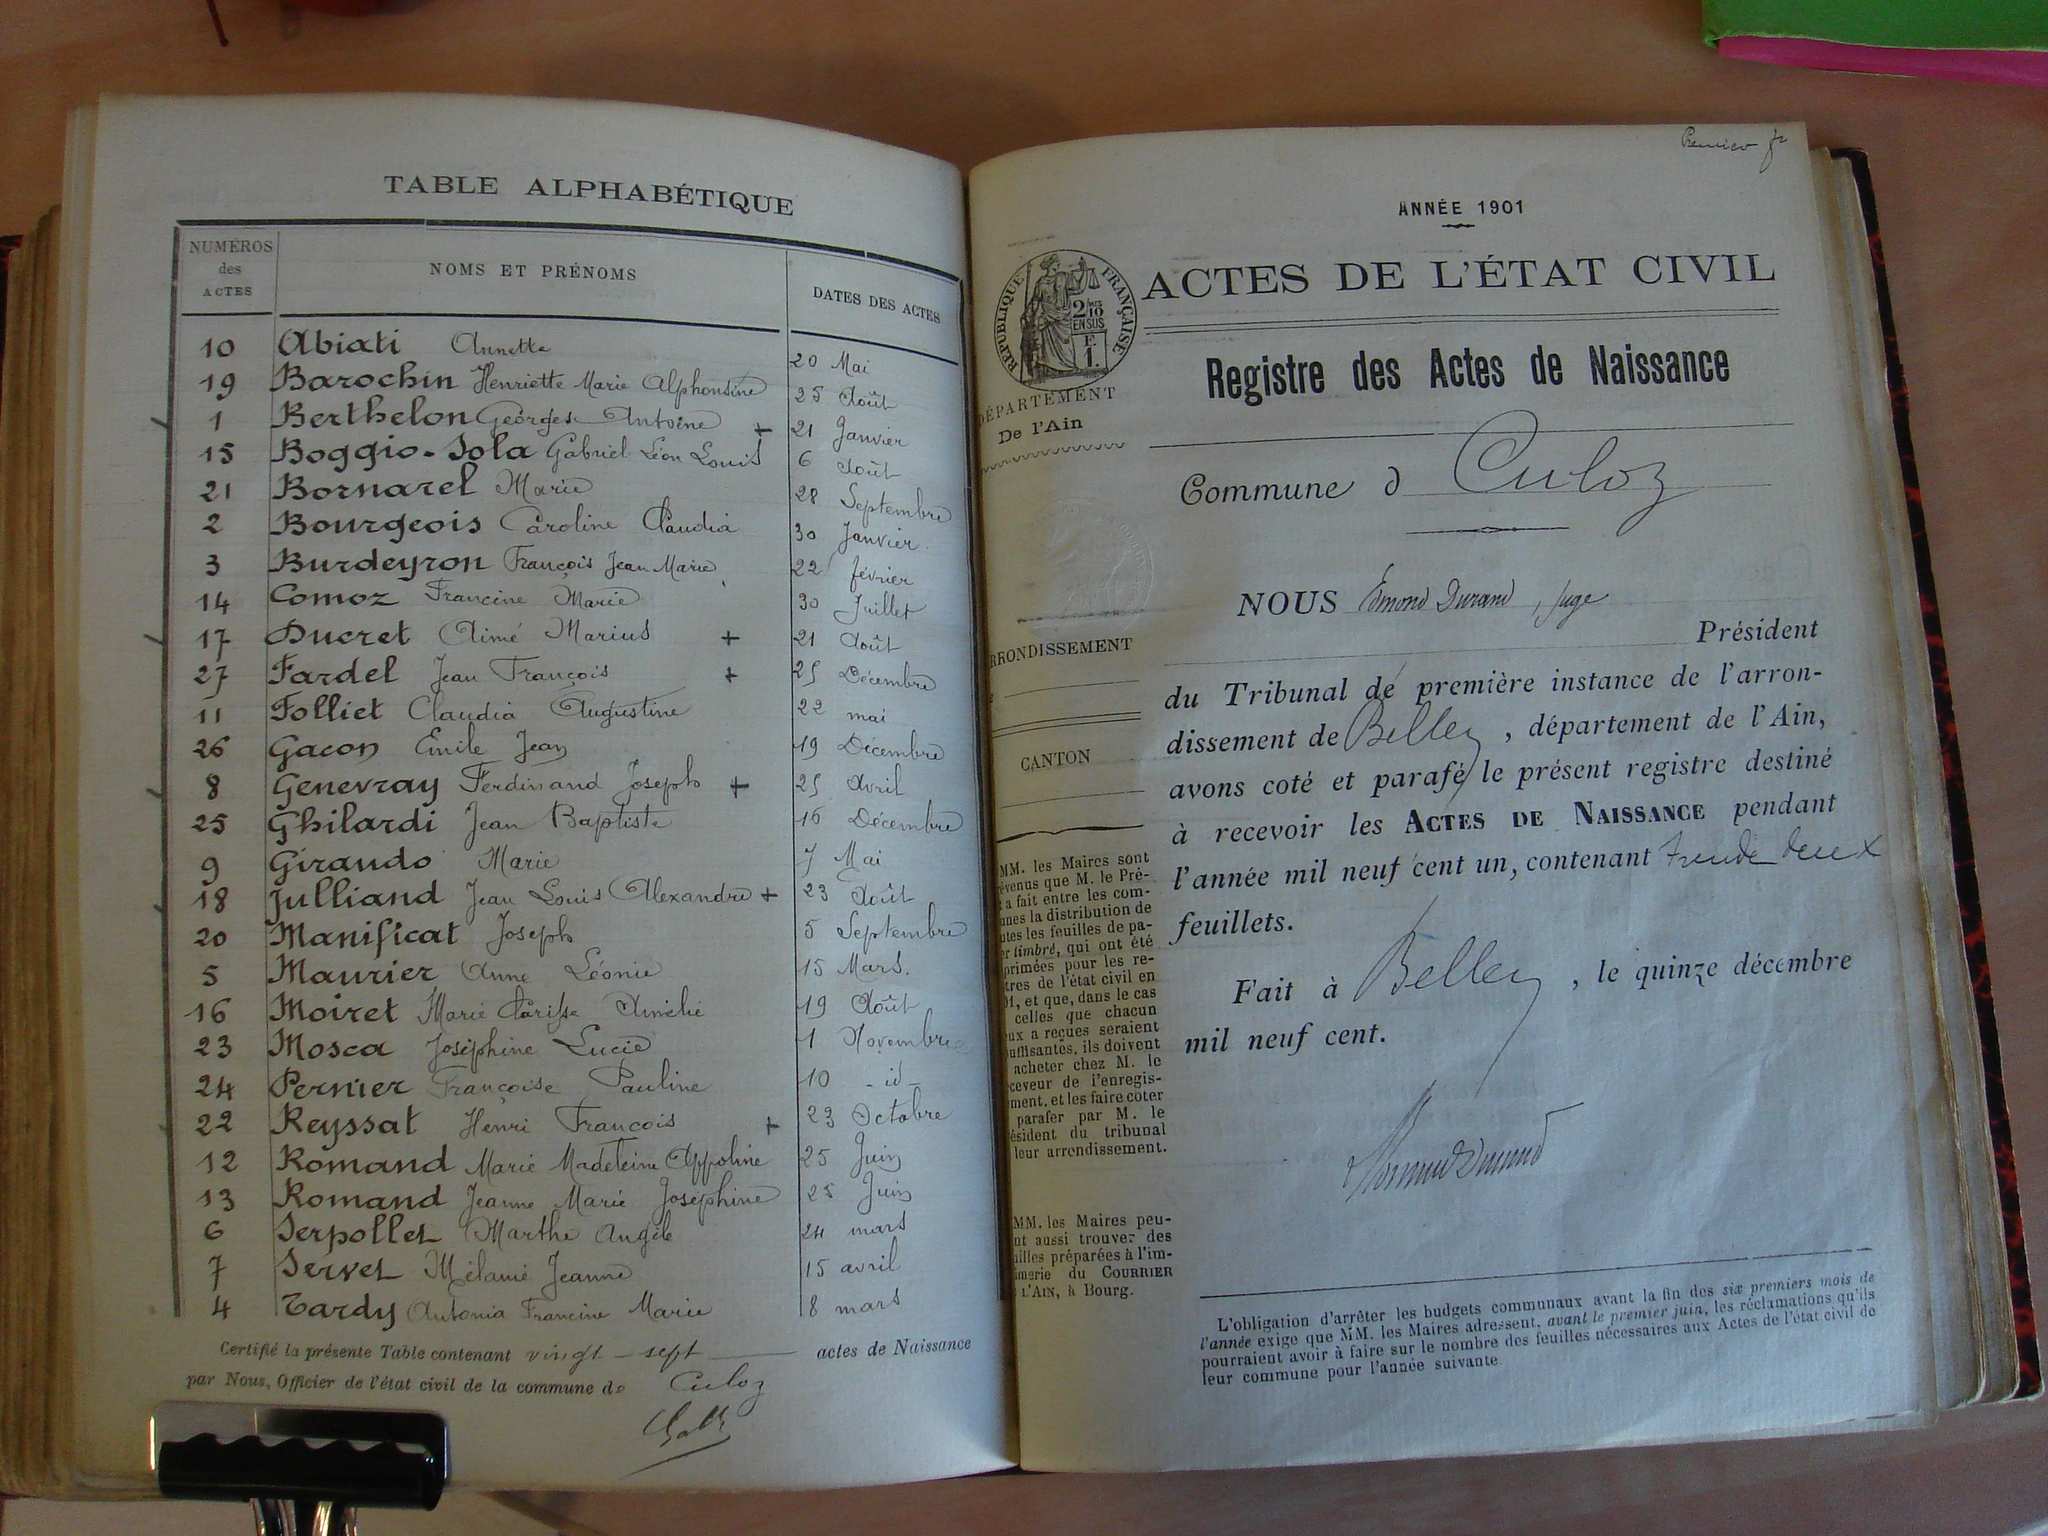 TABLE ALPHABÉTIQUE
NUMÉROS des ACTES NOMS ET PRÉNOMS DATES DES ACTES
10 Abiati Annette 20 Mai
19 Barochin Henriette Marie Alphonsine 25 Août
1 Berthelon Georges Antoine + 21 Janvier
15 Boggio-Sola Gabriel Léon Louis 6 Août
21 Bornarel Marie 28 Septembre
2 Bourgeois Caroline Claudia 30 Janvier
3 Burdeyron François Jean Marie 22 février
14 Comoz Francine Marie 30 Juillet
17 Ducret Aimé Marius + 21 Août
27 Fardel Jean François + 25 Décembre
11 Folliet Claudia Augustine 22 mai
26 Gacon Emile Jean 19 Décembre
8 Genevray Ferdinand Joseph + 25 Avril
25 Ghilardi Jean Baptiste 16 Décembre
9 Giraudo Marie 7 Mai
18 Julliand Jean Louis Alexandre + 23 Août
20 Manificat Joseph 5 Septembre
5 Maurier Anne Léonie 15 Mars.
16 Moiret Marie Clarisse Amélie 19 Août
23 Mosca Joséphine Lucie 1 Novembre
24 Pernier Françoise Pauline 10 - id -
22 Reyssat Henri François + 23 Octobre
12 Romand Marie Madeleine Appoline 25 Juin
13 Romand Jeanne Marie Joséphine 25 Juin
6 Serpollet Marthe Angèle 24 mars
7 Servet Mélanie Jeanne 15 avril
4 Tardy Antonia Francine Marie 8 mars
Certifié la présente Table contenant vingt-sept actes de Naissance
par Nous, Officier de l'état civil de la commune de Culoz
Premier
ANNÉE 1901
RÉPUBLIQUE FRANÇAISE
2/10 EN SUS
E 1.
ACTES DE L'ÉTAT CIVIL
Registre des Actes de Naissance
DÉPARTEMENT
De l'Ain
Commune d Culoz
NOUS Edmond Durand, juge
Président
du Tribunal de première instance de l'arron-
dissement de Belley, département de l'Ain,
avons coté et parafé le présent registre destiné
à recevoir les ACTES DE NAISSANCE pendant
l'année mil neuf cent un, contenant trente deux
feuillets.
Fait à Belley, le quinze décembre
mil neuf cent.
Edmond Durand
RRONDISSEMENT
CANTON
MM. les Maires sont
évenus que M. le Pré-
a fait entre les com-
unes la distribution de
utes les feuilles de pa-
er timbré, qui ont été
primées pour les re-
tres de l'état civil en
01, et que, dans le cas
celles que chacun
eux a reçues seraient
uffisantes, ils doivent
acheter chez M. le
ceveur de l'enregis-
ment, et les faire coter
parafer par M. le
ésident du tribunal
leur arrondissement.
MM. les Maires peu-
nt aussi trouver des
uilles préparées à l'im-
imerie du COURRIER
L'AIN, à Bourg.
L'obligation d'arrêter les budgets communaux avant la fin des six premiers mois de
l'année exige que MM. les Maires adressent, avant le premier juin, les réclamations qu'ils
pourraient avoir à faire sur le nombre des feuilles nécessaires aux Actes de l'état civil de
leur commune pour l'année suivante.